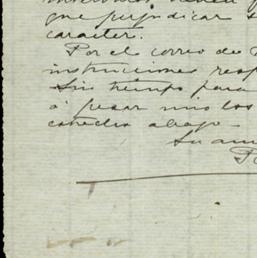 que perjudicar s
caracter.
Por el correo de
instrucciones resp
Sin tiempo para
á pesar mio los
abajo
Su am